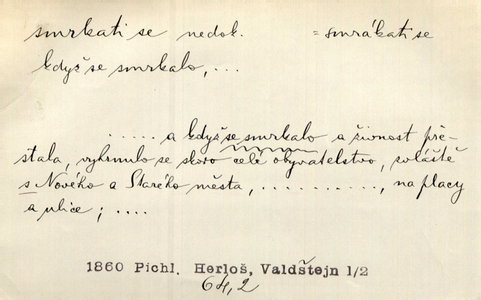 smrkati se nedok. = smrákati se
když se smrkalo, ...
..... a když se smrkalo a živnost pře-
stala, vyhrnulo se skoro celé obyvatelstvo, zvláště
s Nového a Starého města, ..........., na placy
a ulice; ....
1860 Pichl. Herloš, Valdštejn 1/2
64,2